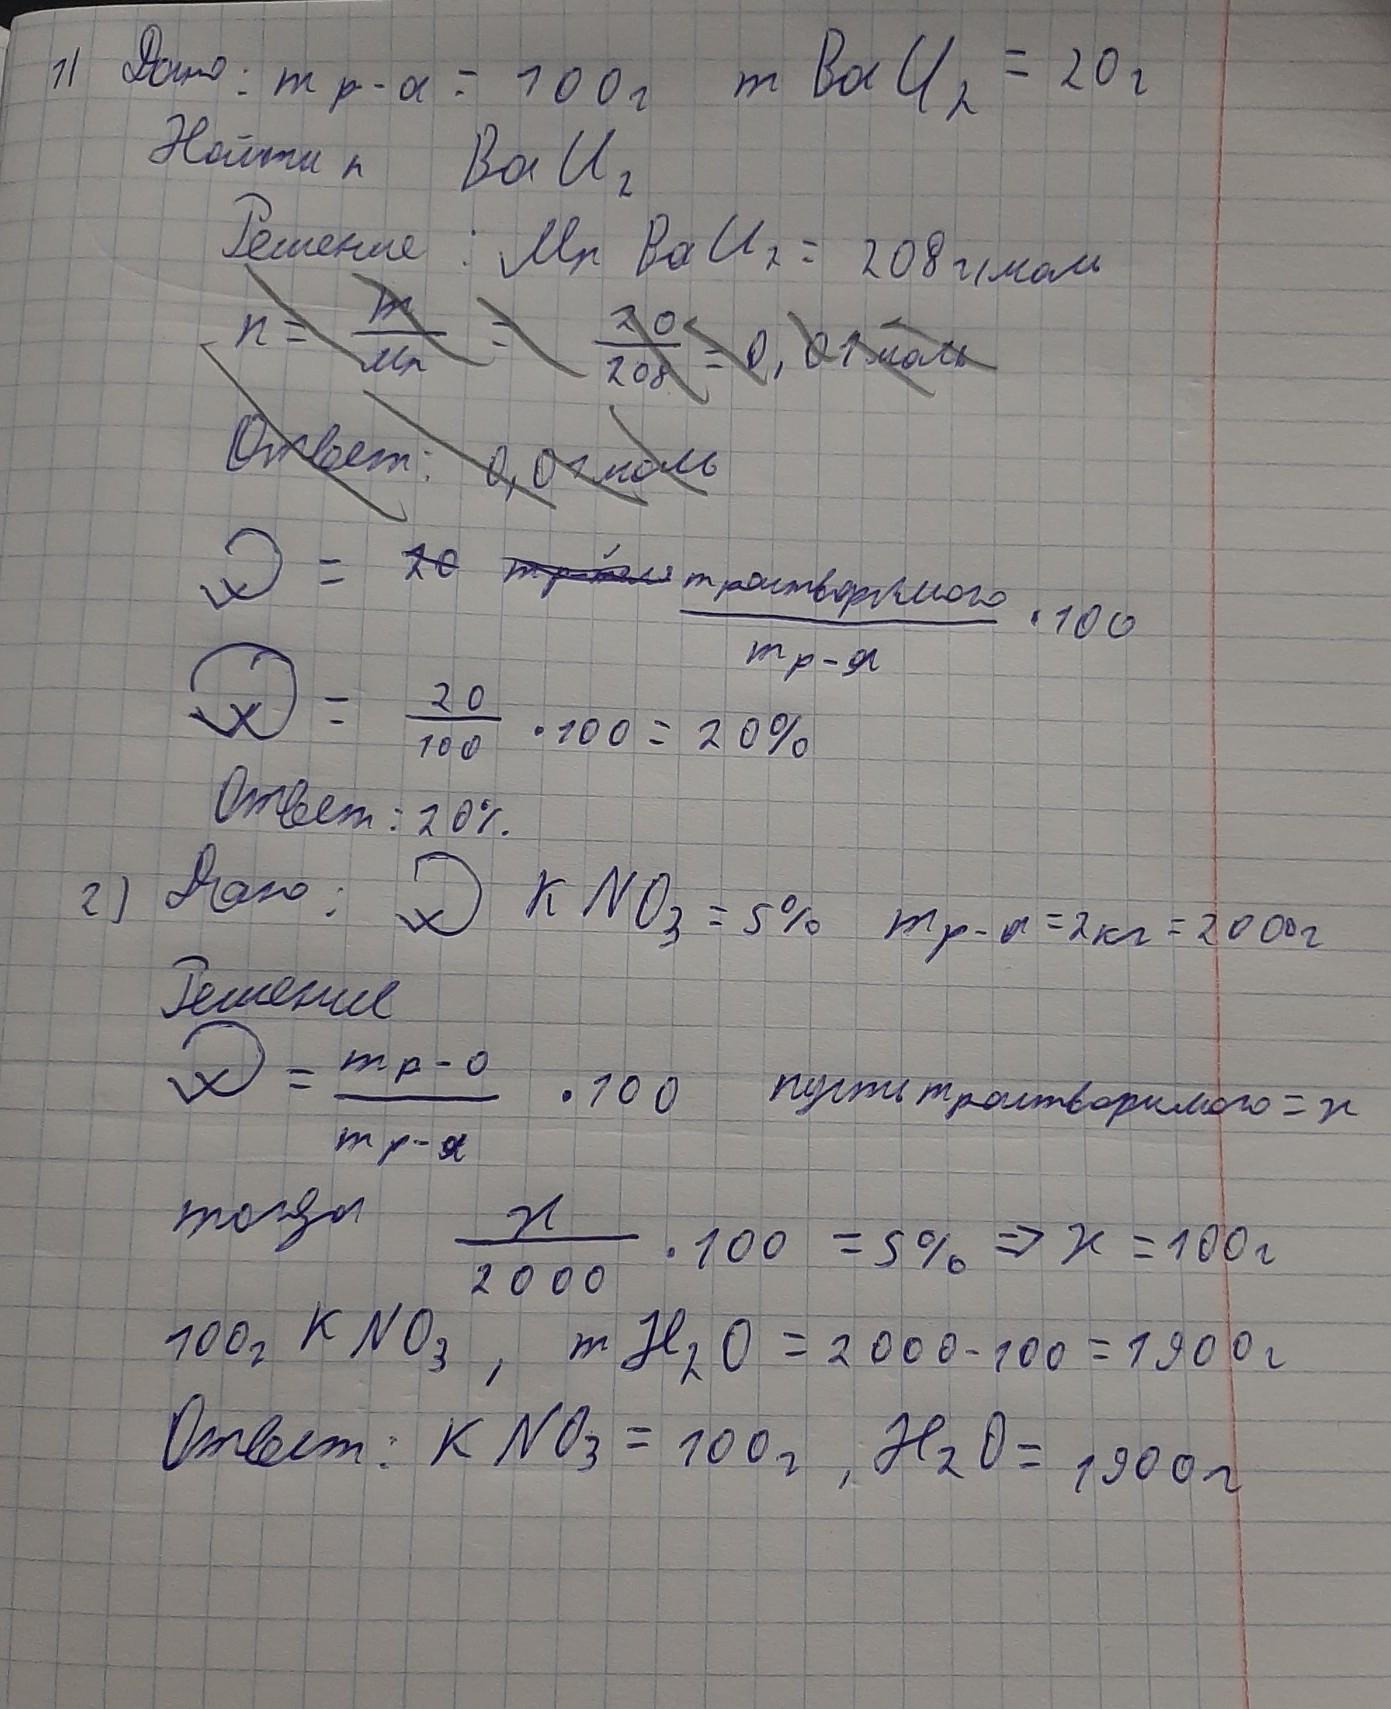 1) Дано: m р-а = 100г m BaCl2 = 20г
Найти n BaCl2
Решение: Mr BaCl2 = 208г/моль
n = m/Mr = 20/208 = 0,01моль
Ответ: 0,01моль
ω = 20 m растворимого/m р-а · 100
ω = 20/100 · 100 = 20%
Ответ: 20%.
2) Дано: ω KNO3 = 5% m р-а = 2кг = 2000г
Решение
ω = m р-о/m р-а · 100 пусть m растворимого = x
тогда x/2000 · 100 = 5% => x = 100г
100г KNO3, m H2O = 2000-100 = 1900г
Ответ: KNO3 = 100г, H2O = 1900г